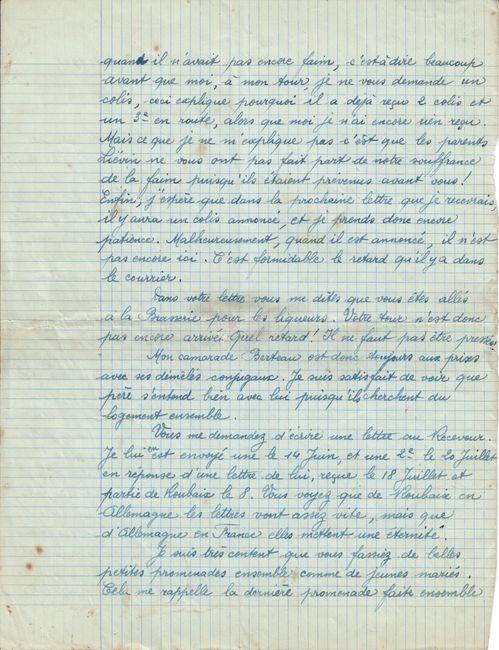 quand il n'avait pas encore faim, c'est à dire beaucoup
avant que moi, à mon tour, je ne vous demande un
colis, ceci explique pourquoi il a déjà reçu 2 colis et
un 3e en route, alors que moi je n'ai encore rien reçu.
Mais ce que je ne m'explique pas c'est que les parents
Liévin ne vous ont pas fait part de notre souffrance
de la faim puisqu'ils étaient prévenus avant vous!
Enfin, j'espère que dans la prochaine lettre que je recevrais
il y aura un colis annoncé, et je prends donc encore
patience. Malheureusement, quand il est annoncé, il n'est
pas encore ici. C'est formidable le retard qu'il y a dans
le courrier.
Dans votre lettre vous me dites que vous êtes allés
a la Brasserie pour les liqueurs. Votre tour n'est donc
pas encore arrivé. Quel retard! Il ne faut pas être pressés!
Mon camarade Berteau est donc toujours aux prises
avec ses démêlés conjugaux. Je suis satisfait de voir que
père s'entend bien avec lui puisqu'ils cherchent du
logement ensemble.
Vous me demandez d'écrire une lettre au Receveur.
Je lui en est envoyé une le 14 Juin, et une 2e le 20 Juillet
en réponse d'une lettre de lui, reçue le 18 Juillet et
partie de Roubaix le 8. Vous voyez que de Roubaix en
Allemagne les lettres vont assez vite, mais que
d'Allemagne en France elles mettent une éternité.
Je suis très content que vous fassiez de belles
petites promenades ensemble comme de jeunes mariés.
Celà me rappelle la dernière promenade faite ensemble